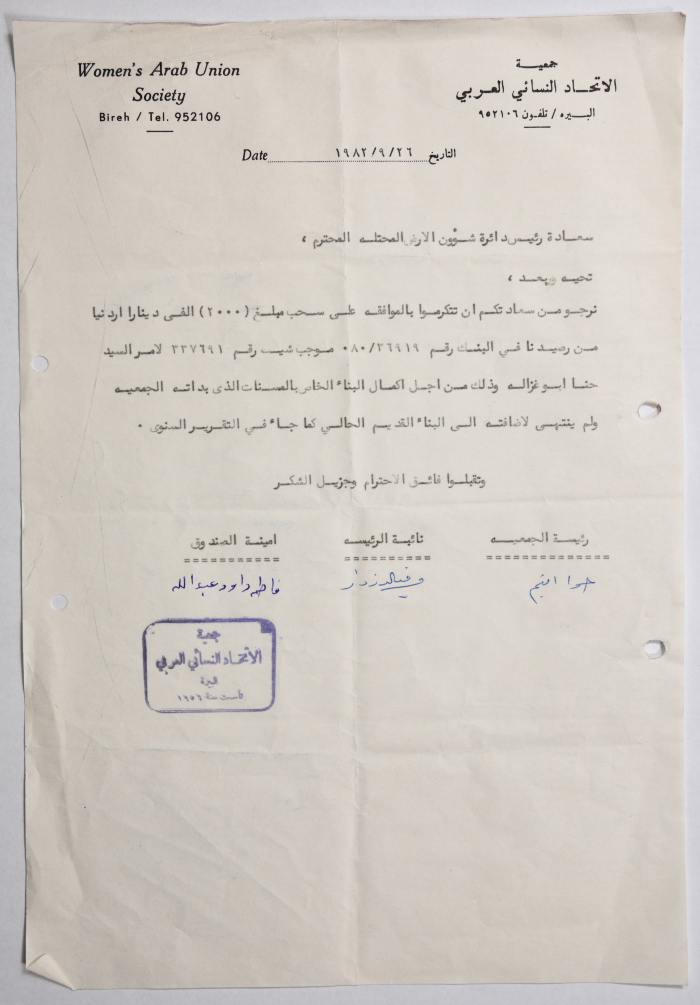 Women's Arab Union
Society
Bireh / Tel. 952106
جمعيــة
الاتحـاد النسائي العـربي
البـيره / تلفـون ٩٥٢١٠٦
Date ١٩٨٢/٩/٢٦ التاريخ
سعـادة رئيس دائرة شؤون الارض المحتله المحترم ،
تحيه وبعـد ،
نرجـو مـن سعاد تكـم ان تتكرمـوا بالموافقـه علـى سحب مبلـغ (٢٠٠٠) الفـى دينارا اردنيا
مـن رصيدنا فـي البنك رقـم ٠٨٠/٣٦٩١٩ موجب شيـك رقـم ٣٣٧٦٩١ لامـر السيد
حنـا ابـو غزالـه وذلك مـن اجـل اكمـال البناء الخاص بالمسنات الذى بدأتـه الجمعيـه
ولـم ينتهـى لاضافتـه الـى البناء القديـم الحالـي كما جـاء فـي التقريـر السنوى .
وتقبلـوا فائـق الاحترام وجزيـل الشكـر
رئيسة الجمعيـه
نائبـة الرئيسـه
امينـة الصندوق
فاطمه داود عبدالله
جمعية
الاتحاد النسائي العربي
البيرة
تأسست سنة ١٩٥٦